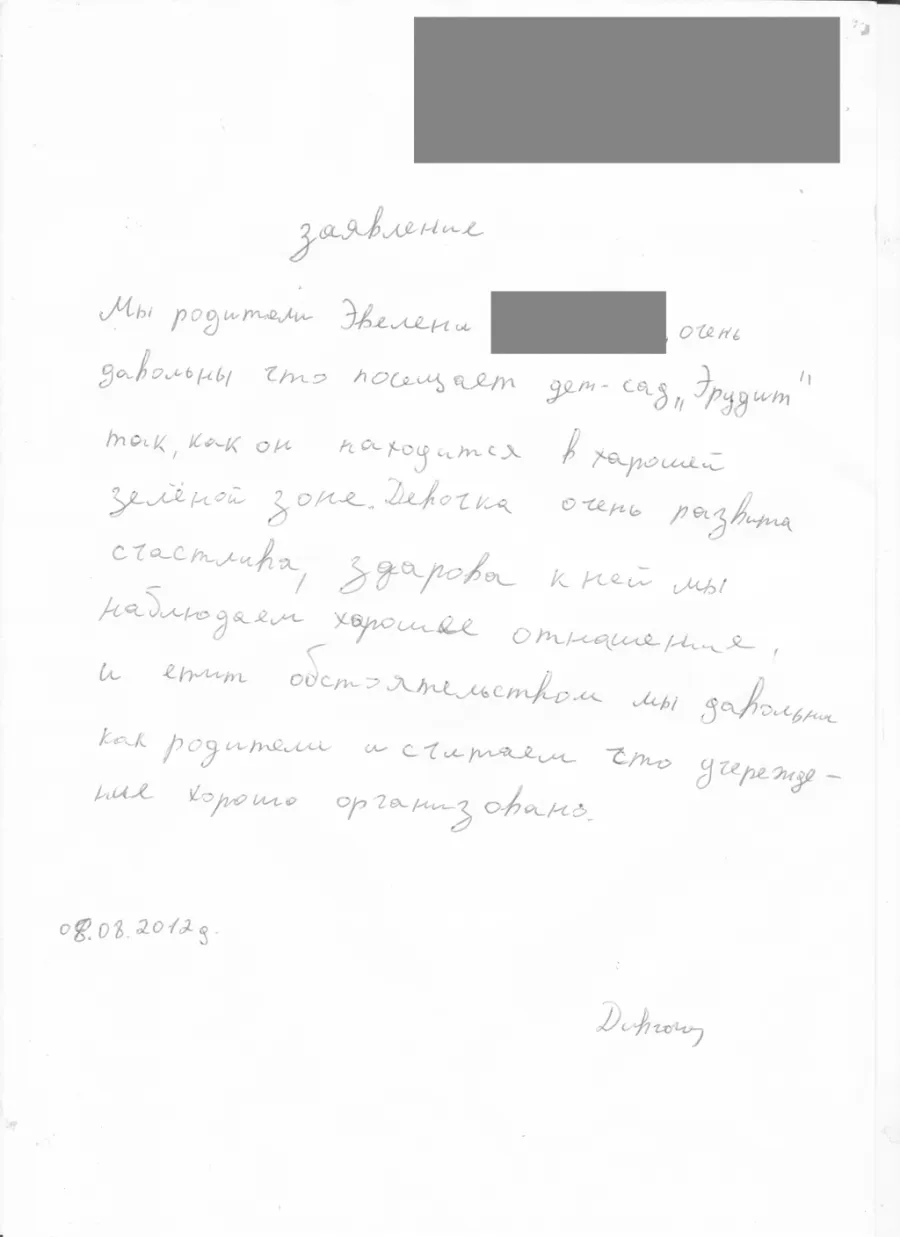 заявление
Мы родители Эвелени , очень
давольны что посещает дет-сад „Эрудит"
так, как он находится в харошей
зелёной зоне. Девочка очень развита
счастлива, здарова к ней мы
наблюдаем харошее отнашение,
и етит обстоятельством мы давольны
как родители и считаем что учережде-
ние хорошо организовано.
08.08.2012г.